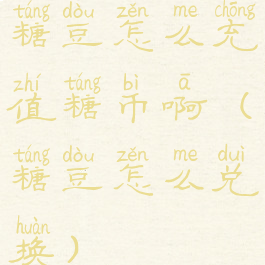 táng dòu zěn me chōng
糖豆怎么充
zhí táng bì ā
值糖币啊（
táng dòu zěn me duì
糖豆怎么兑
huàn
换）